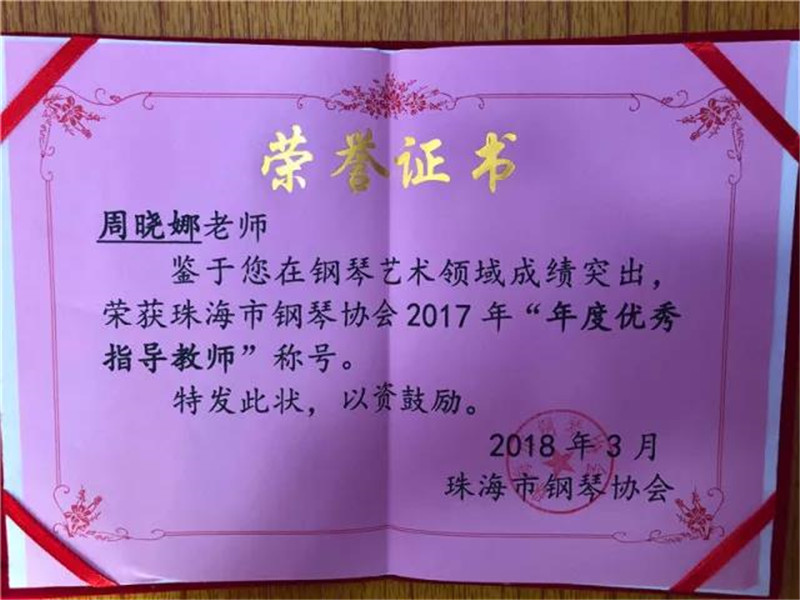 荣誉证书
周晓娜老师
鉴于您在钢琴艺术领域成绩突出，
荣获珠海市钢琴协会2017年“年度优秀
指导教师”称号。
特发此状，以资鼓励。
2018年3月
珠海市钢琴协会